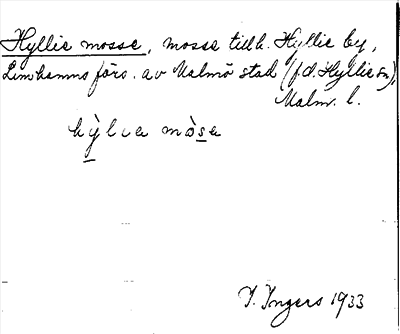 Hyllie mosse, mosse tillh. Hyllie by,
Limhamns förs. av Malmö stad (f.d. Hyllie sn),
Malm. l.
hỳlıe mòse
I. Ingers 1933